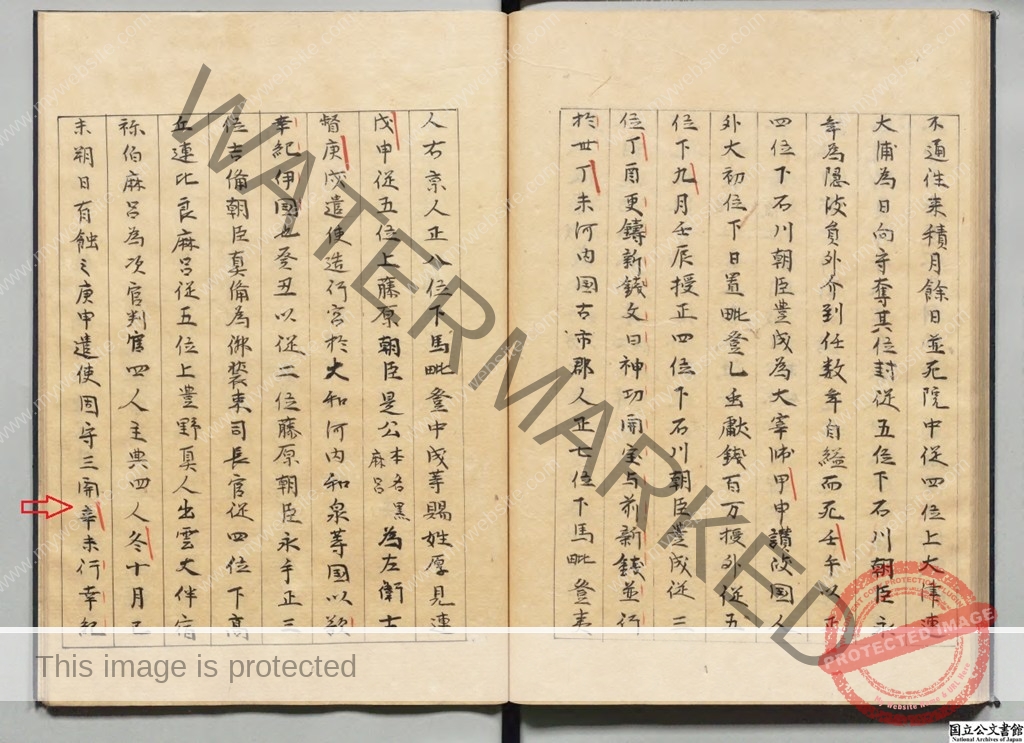 不通往来積月餘日並死院中従四位上大津連
大浦為日向守奪其位封従五位下石川朝臣永
年為隠岐員外介到任数年自縊而死壬午以正
四位下石川朝臣豊成為大宰帥甲申讃岐国人
外大初位下日置毗登乙虫獻銭百万授外従五
位下九月壬辰授正四位下石川朝臣豊成従三
位丁酉更鑄新銭文曰神功開宝与前新銭並行
於世丁未河内国古市郡人正七位下馬毗登夷
人右京人正八位下馬毗登中成等賜姓厚見連
戊申従五位上藤原朝臣是公本名黒麻呂為左衛士
督庚戌遣使造行宮於大和河内和泉等国以欲
幸紀伊國也癸丑以従二位藤原朝臣永手正三
位吉備朝臣真備為御装束司長官従四位下高
丘連比良麻呂従五位上豊野真人出雲大伴宿
祢伯麻呂為次官判官四人主典四人冬十月己
未朔日有蝕之庚申遣使固守三関辛未行幸紀
WATERMARKED
This image is protected
PROTECTED IMAGE
国立公文書館
National Archives of Japan